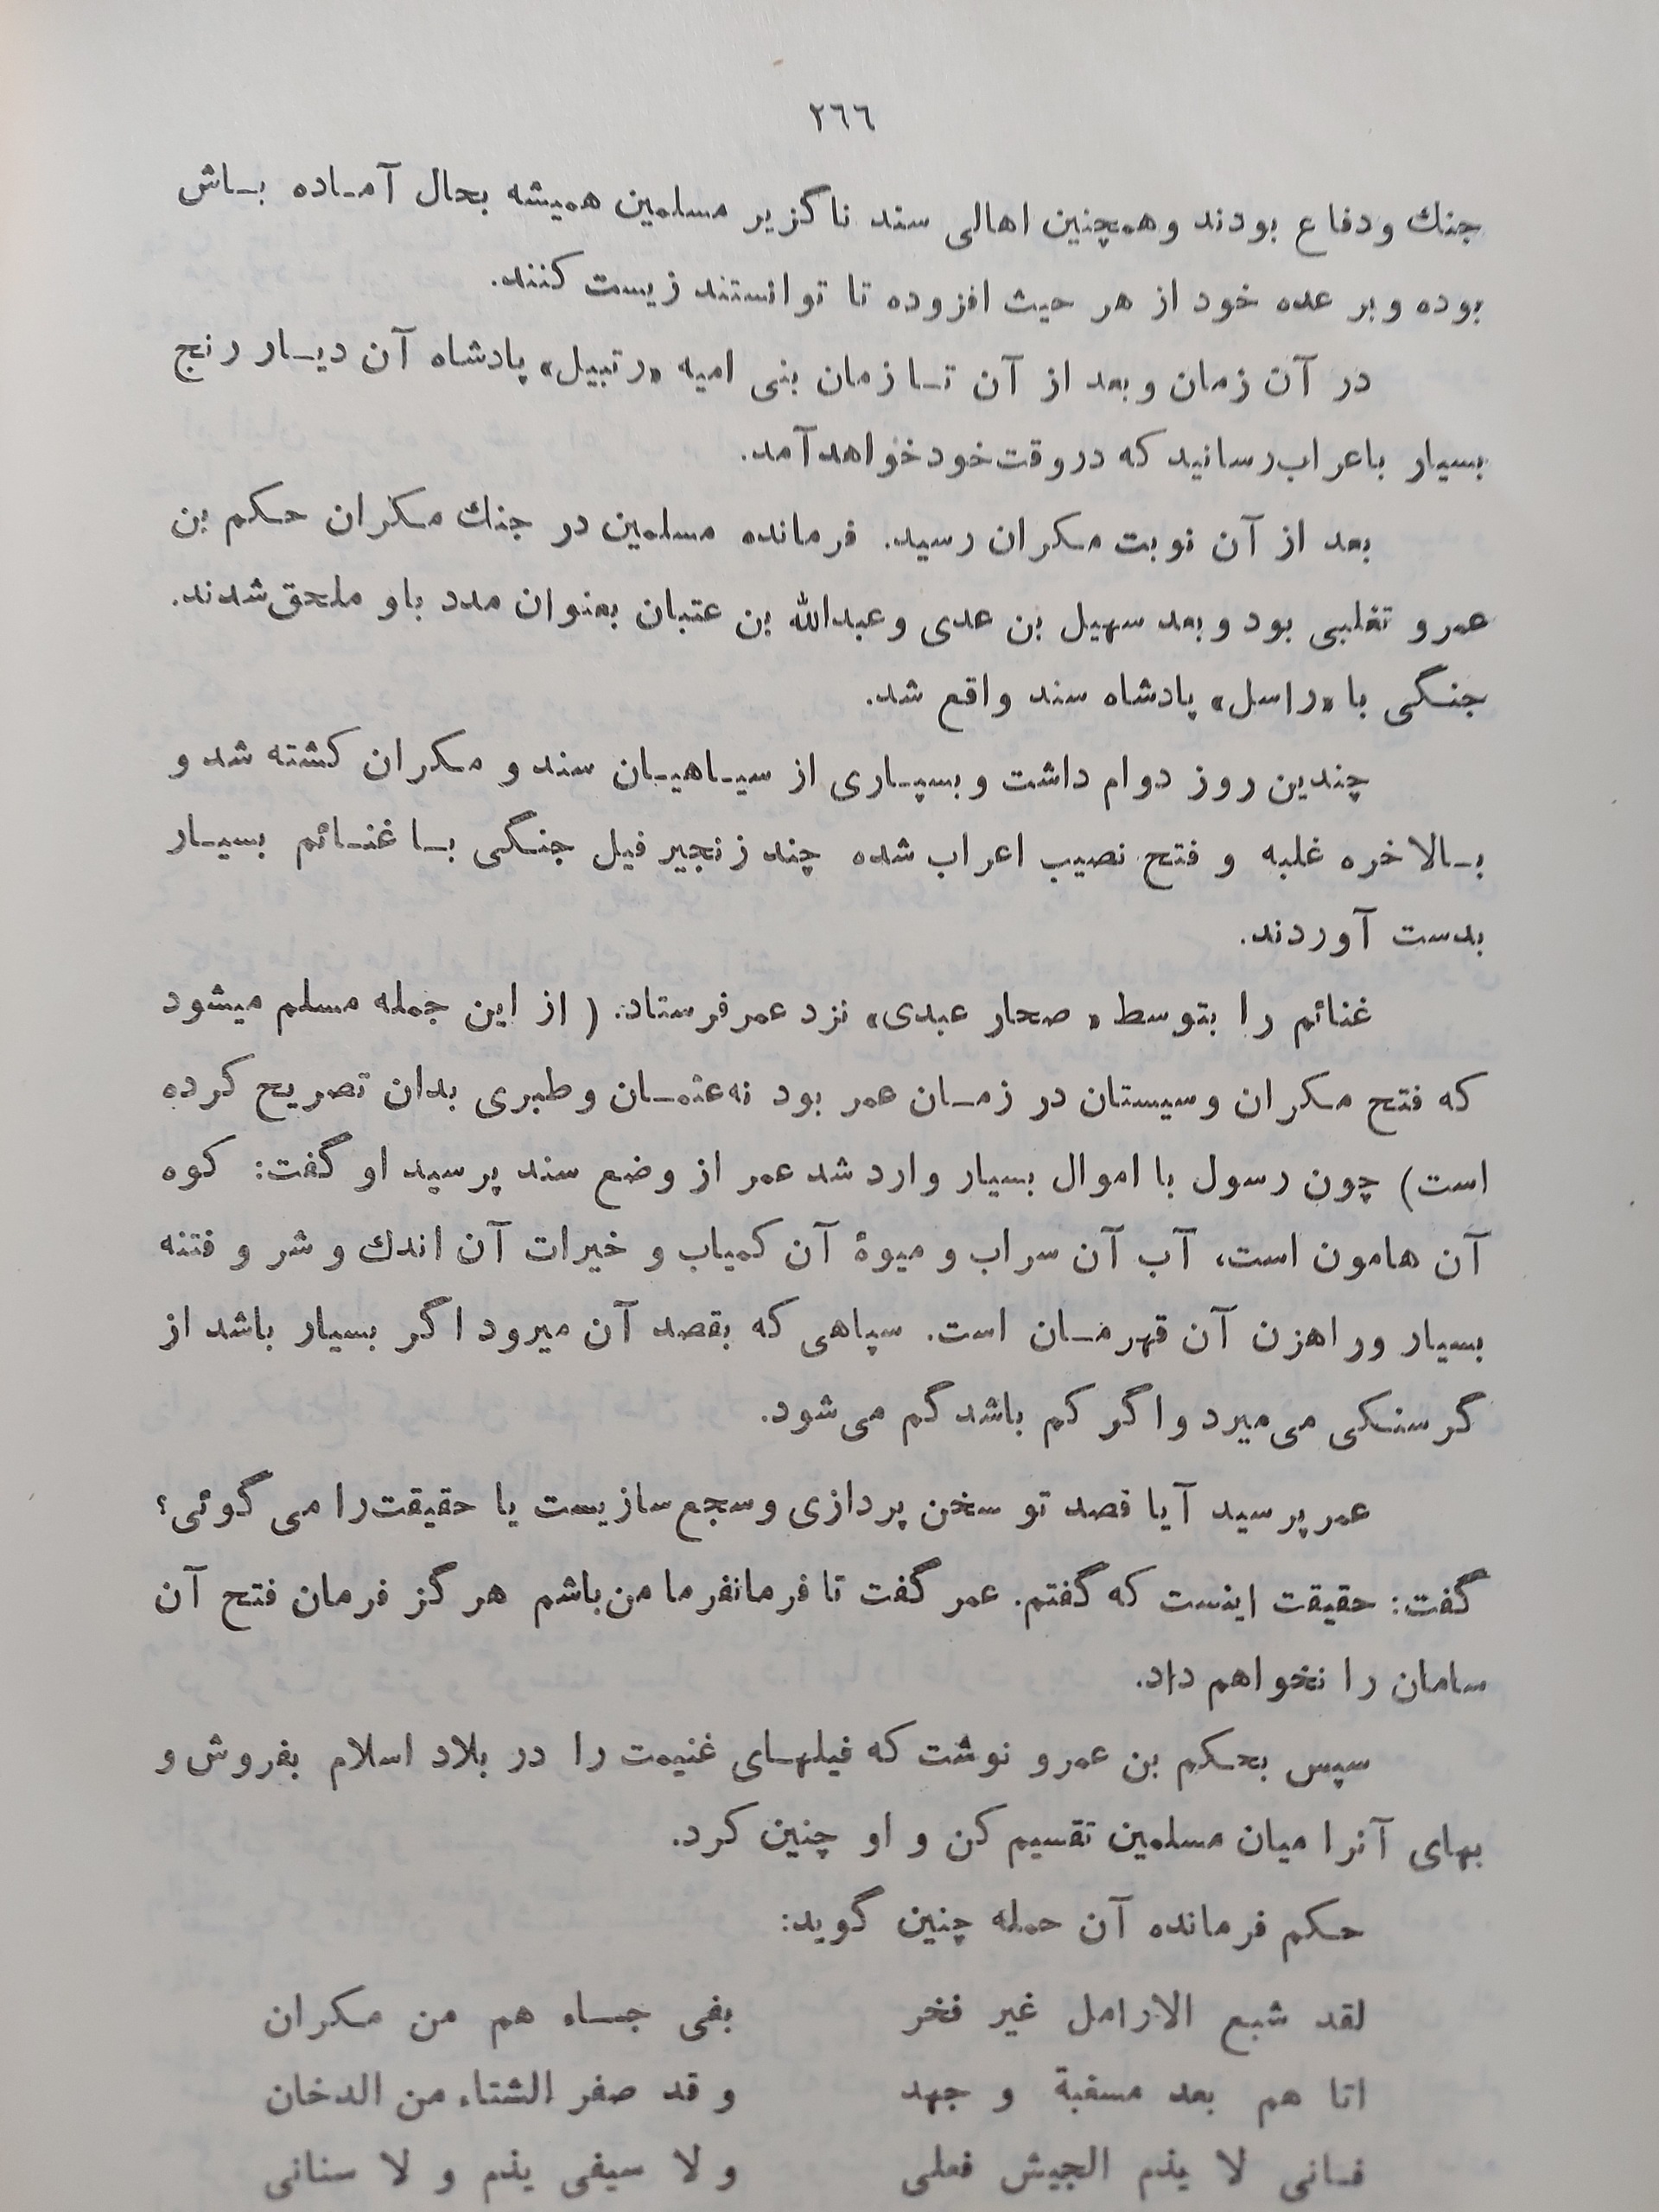 ٢٦٦
جنك ودفاع بودند وهمچنين اهالى سند ناكزير مسلمين هميشه بحال آمـاده بـاش
بوده وبر عده خود از هر حيث افزوده تا توانستند زيست كنند.
در آن زمان وبعد از آن تـا زمان بنى اميه «رتبيل» پادشاه آن ديـار رنج
بسيار باعراب‌رسانيد كه دروقت‌خودخواهدآمد.
بعد از آن نوبت مكران رسيد. فرمانده مسلمين در جنك مكران حكم بن
عمرو تغلبى بود وبعد سهيل بن عدى وعبدالله بن عتبان بعنوان مدد باو ملحق‌شدند.
جنگى با «راسل» پادشاه سند واقع شد.
چندين روز دوام داشت وبسپـارى از سيـاهيـان سند و مكران كشته شد و
بـالاخره غلبه و فتح نصيب اعراب شده چند زنجير فيل جنگى بـا غنـائم بسيـار
بدست آوردند.
غنائم را بتوسط « صحار عبدى» نزد عمرفرستاد. ( از اين جمله مسلم ميشود
كه فتح مكران وسيستان در زمـان عمر بود نه‌عثمـان وطبرى بدان تصريح كرده
است) چون رسول با اموال بسيار وارد شد عمر از وضع سند پرسپد او گفت: كوه
آن هامون است، آب آن سراب و ميوۀ آن كمياب و خيرات آن اندك و شر و فتنه
بسيار وراهزن آن قهرمـان است. سپاهى كه بقصد آن ميرود اگر بسيار باشد از
گرسنكى مى‌ميرد واگر كم باشد گم مى‌شود.
عمرپرسيد آيا قصد تو سخن پردازى وسجع‌سازيست يا حقيقت‌را مى گوئى؟
گفت: حقيقت اينست كه گفتم. عمر گفت تا فرمانفرما من‌باشم هرگز فرمان فتح آن
سامان را نخواهم داد.
سپس بحكم بن عمرو نوشت كه فيلهـاى غنيمت را در بلاد اسلام بفروش و
بهاى آنرا ميان مسلمين تقسيم كن و او چنين كرد.
حكم فرمانده آن حمله چنين گويد:
لقد شبع الارامل غير فخر بفى جـاء هم من مكران
اتا هم بعد مسغبة و جهد و قد صفر الشتاء من الدخان
فـانى لا يذم الجيش فعلى و لا سيفى يذم و لا سنانى